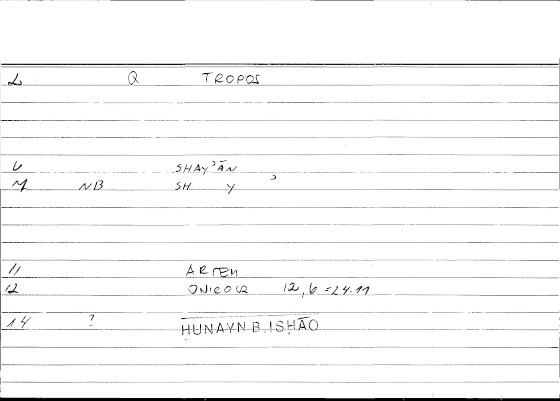 L Q TROPOS
6 SHAY'ĀN
7 NB SH Y '
11 ARTEM
12 ONIROCR 12,6 =24.11
14 ? HUNAYN B. ISHĀQ